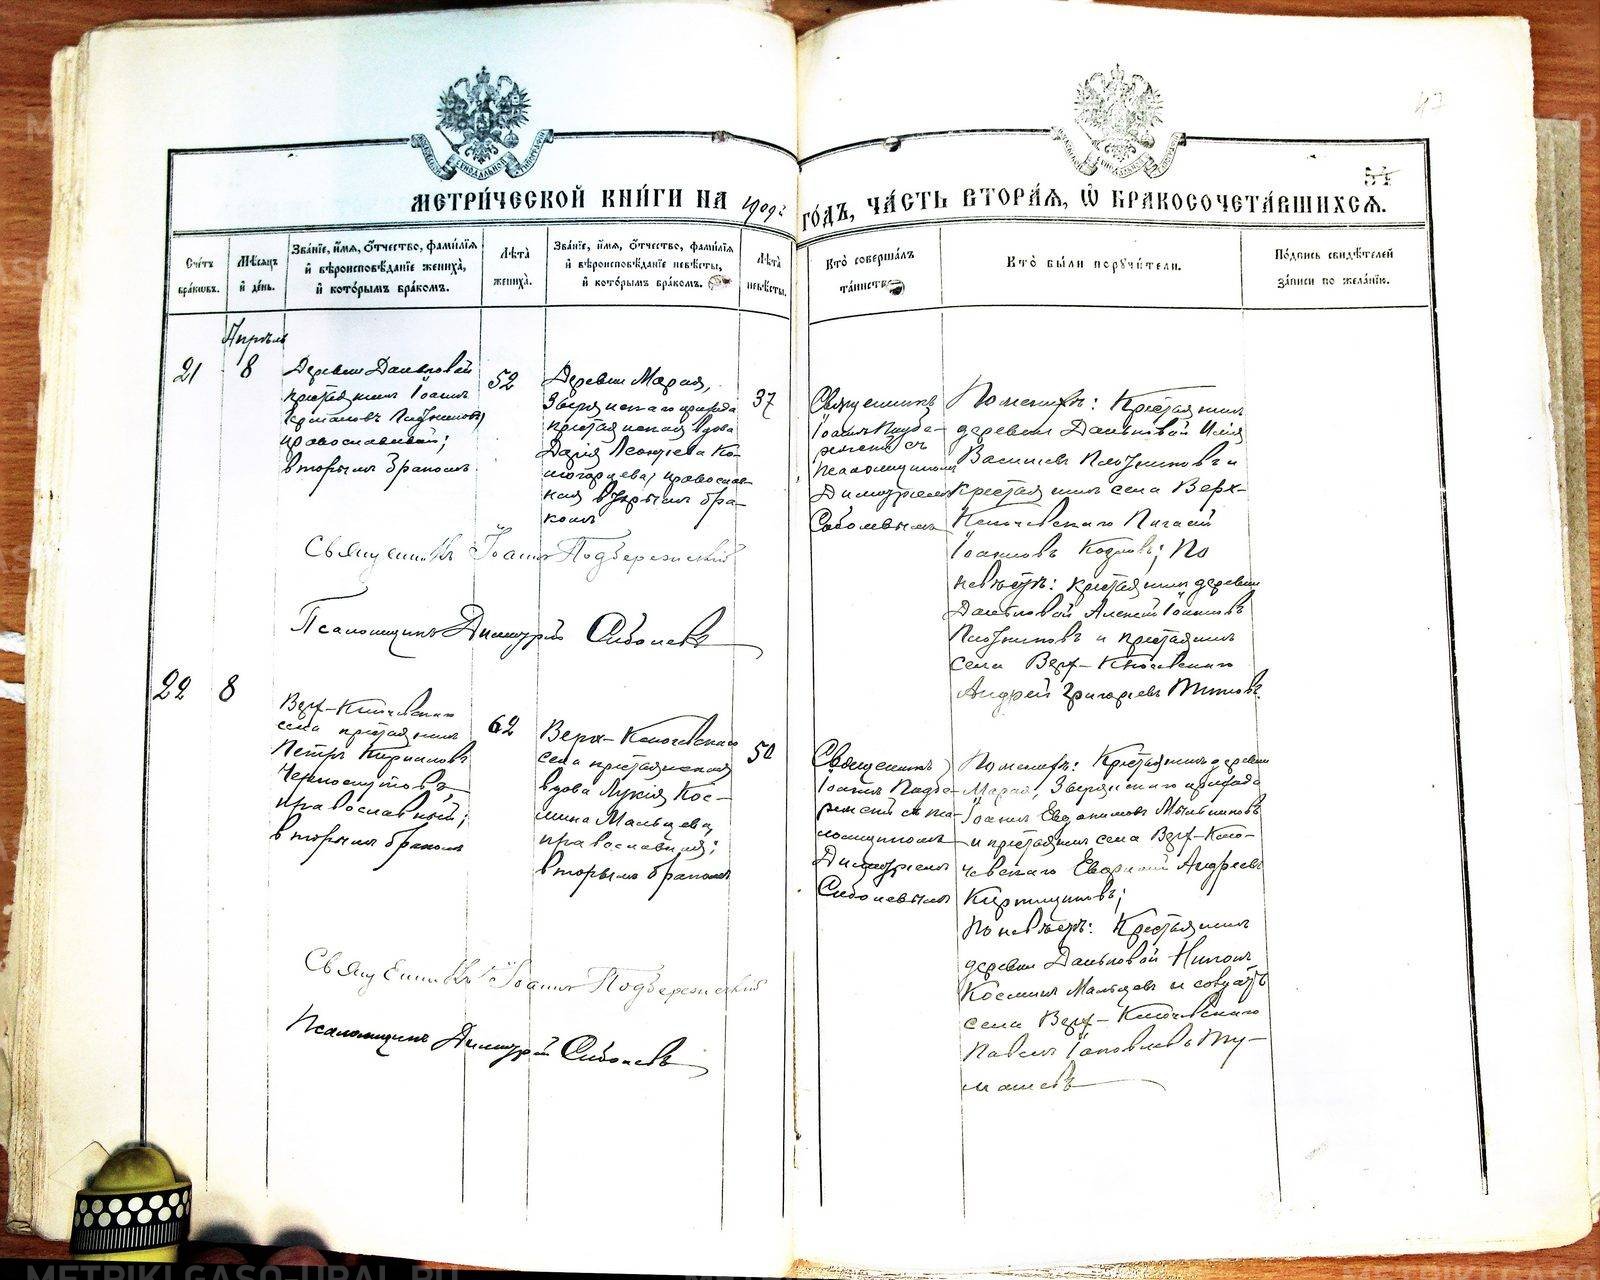 47
54
МЕТРИ́ЧЕСКОЙ КНИ́ГИ НА 1909 г ГО́ДЪ, ЧА́СТЬ ВТОРА́Я, Ѿ БРАКОСОЧЕТА́ВШИХСЯ.
Сче́тъ бра́ковъ.
Мѣ́сяцъ и҆ де́нь.
Зва́нїе, и҆́мя, ѻ҆́тчество, фами́лїя и҆ вѣроисповѣ́данїе жениха̀, и҆ кото́рымъ бра́комъ.
Лѣ́та жениха̀.
Зва́нїе, и҆́мя, ѻ҆́тчество, фами́лїя и҆ вѣроисповѣ́данїе невѣ́сты, и҆ кото́рымъ бра́комъ.
Лѣ́та невѣ́сты.
Кто̀ соверша́лъ та́инство
Кто̀ бы́ли порꙋчи́тели.
По́дпись свидѣ́телей за́писи по жела́нїю.
Апрѣль
21
8
Деревни Даньковой
крестьянинъ Іоаннъ
Плотниковъ,
православный;
вторымъ бракомъ
52
Деревни Марая,
Звериноголовскаго прихода
крестьянская вдова
Дарія Леонтьева
православ-
ная вторымъ бра-
комъ
37
Священникъ
Іоаннъ Подбе-
резскій съ
псаломщикомъ
Димитріемъ
Соболевымъ
По женихѣ: Крестьянинъ
деревни Даньковой Илія
Васильевъ Плотниковъ и
крестьянинъ села Верх-
Ключевскаго
Іоанновъ Козловъ; По
невѣстѣ: крестьянинъ деревни
Даньковой Алексѣй Іоанновъ
Плотниковъ и крестьянинъ
села Верх-Ключевскаго
Андрей Григорьевъ
Священникъ Іоаннъ Подберезскій
Псаломщикъ Димитрій Соболевъ
22
8
Верх-Ключевскаго
села крестьянинъ
Петръ Кирилловъ
православный;
вторымъ бракомъ
62
Верх-Ключевскаго
села крестьянская
вдова Лукія Кос-
мина Мальцева,
православная;
вторымъ бракомъ
50
Священникъ
Іоаннъ Подбе-
резскій съ пса-
ломщикомъ
Димитріемъ
Соболевымъ
По женихѣ: Крестьянинъ деревни
Марая, прихода
Іоаннъ Евдокимовъ Мыльниковъ
и крестьянинъ села Верх-Клю-
чевскаго Андреевъ
Кирпищиковъ;
По невѣстѣ: Крестьянинъ
деревни Даньковой Никонъ
Косминъ Мальцевъ и солдатъ
села Верх-Ключевскаго
Павелъ Іаковлевъ Ту-
машевъ
Священникъ Іоаннъ Подберезскій
Псаломщикъ Димитрій Соболевъ